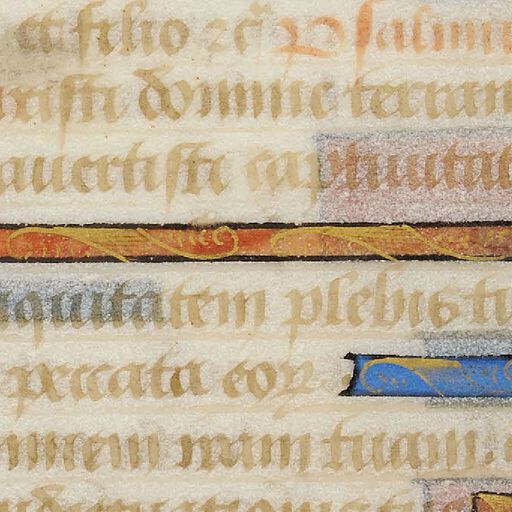 et filio ⁊c̄ Psalmu
risti domine terram
auertisti captiuitat
iquitatem plebis tu
peccata eoꝝ
mnem iram tuam.